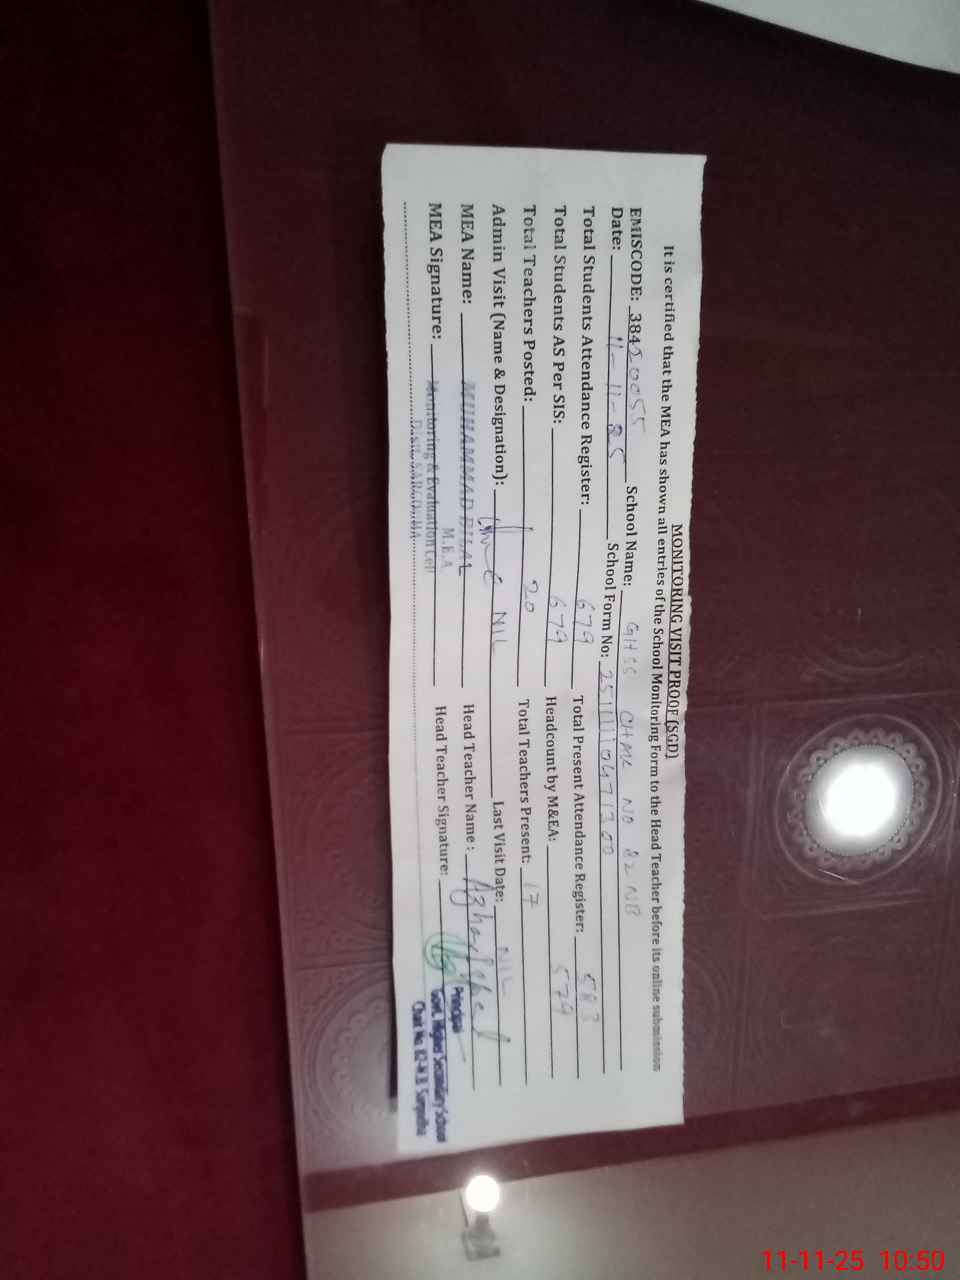 MONITORING VISIT PROOF (SGD)
It is certified that the MEA has shown all entries of the School Monitoring Form to the Head Teacher before its online submission
EMISCODE: 38420055 School Name: GHSS CHAK NO 82 NB
Date: 11-11-25 School Form No: 2511110471300
Total Students Attendance Register: 679 Total Present Attendance Register: 583
Total Students AS Per SIS: 679 Headcount by M&EA: 579
Total Teachers Posted: 20 Total Teachers Present: 17
Admin Visit (Name & Designation): NIL Last Visit Date: NIL
MEA Name: MUHAMMAD BILAL Head Teacher Name:
MEA Signature: Head Teacher Signature:
M.E.A
Monitoring & Evaluation Cell
Distt. SARGODHA
Principal
Govt. Higher Secondary School
Chak No. 82-N.B. Sargodha
11-11-25 10:50